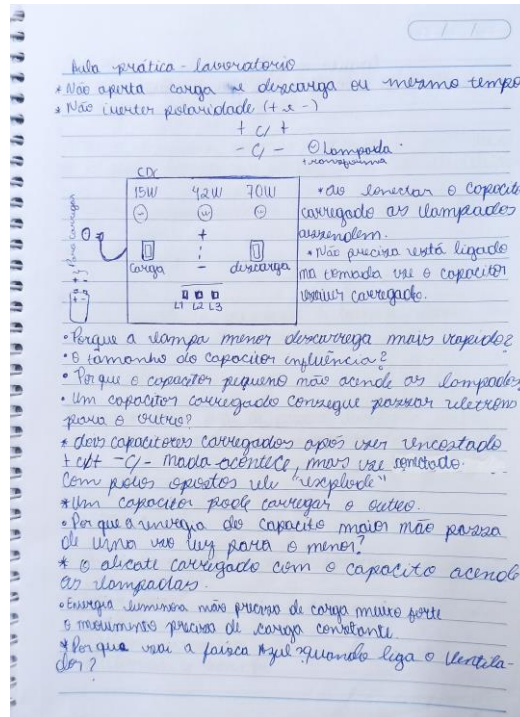 Aula prática - lavoratorio
* Não aperta carga e descarga ou mesmo tempo
* Não inverter polaridade (+ e -)
+ c/ +
- c/ - Lampada
+ transforma
CDC
15W 42W 70W
Para carregar
+
-
carga descarga
L1 L2 L3
* ao conectar o capacito
carregado as lampadas
assendem.
• Não precisa está ligado
na tomada se o capacitor
estiver carregado.
• Porque a lampa menor descarrega mais rapido?
• O tamanho do capacitor influência?
• Por que o capacitor pequeno não acende as lampadas
• Um capacitor carregado consegue passar eletrons
para o outro?
* dois capacitores carregados após ser encostado
+ c/+ - c/- nada acontece, mas se conectado
com polos opostos ele "explode"
* Um capacitor pode carregar o outro.
• Por que a energia do capacito maior não passa
de uma so vez para o menor?
* o alicate carregado com o capacito acende
as lampadas.
• Energia luminosa não precisa de carga muito forte
o movimento precisa de carga constante
* Por que sai a faisca Azul quando liga o Ventila-
dor?